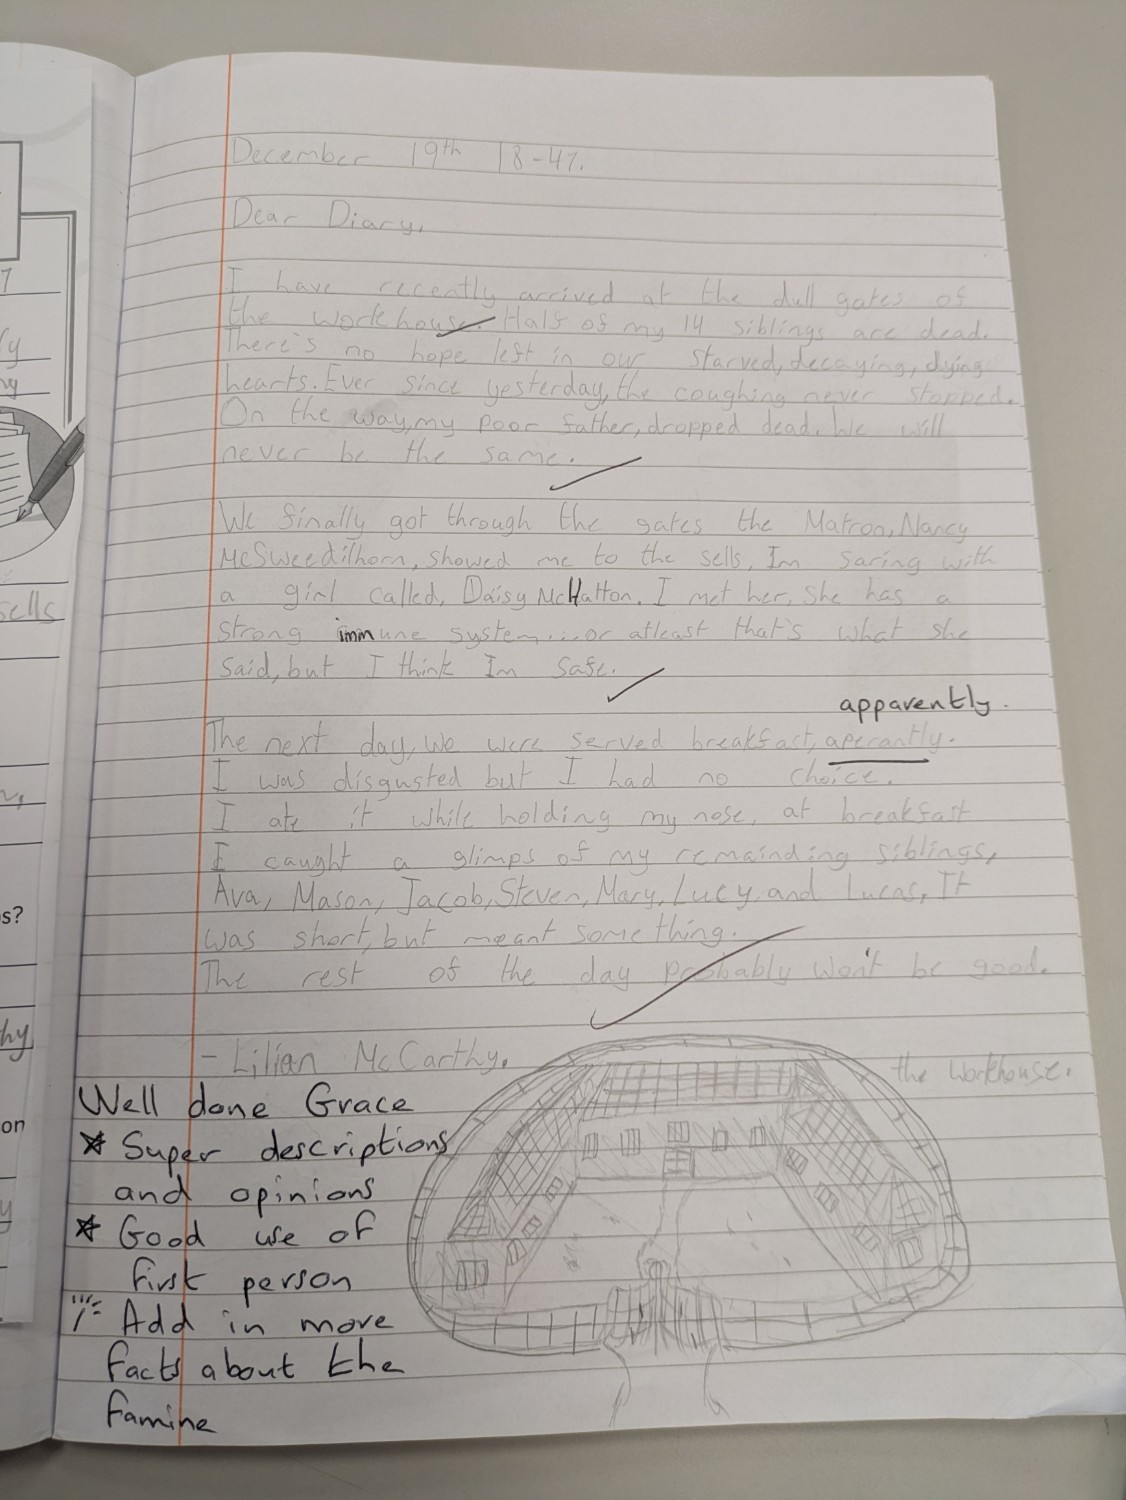 December 19th 18-47.
Dear Diary,
I have recently arrived at the dull gates of
the workhouse. Half of my 14 siblings are dead.
There's no hope left in our starved, decaying, dying
hearts. Ever since yesterday, the coughing never stopped.
On the way, my poor father, dropped dead. We will
never be the same.
We finally got through the gates the Matron, Nancy
McSweedilhorn, showed me to the sells, Im saring with
a girl called, Daisy McHatton. I met her, she has a
strong immune system....or atleast that's what she
said, but I think Im safe.
apparently.
The next day, we were served breakfast, aperantly.
I was disgusted but I had no choice.
I ate it while holding my nose, at breakfast
I caught a glimps of my remainding siblings,
Ava, Mason, Jacob, Steven, Mary, Lucy and Lucas, It
was short, but meant something.
The rest of the day probably won't be good.
- Lilian McCarthy.
the workhouse.
Well done Grace
* Super descriptions
and opinions
* Good use of
first person
Add in more
facts about the
famine
sells
s?
hy
on
y